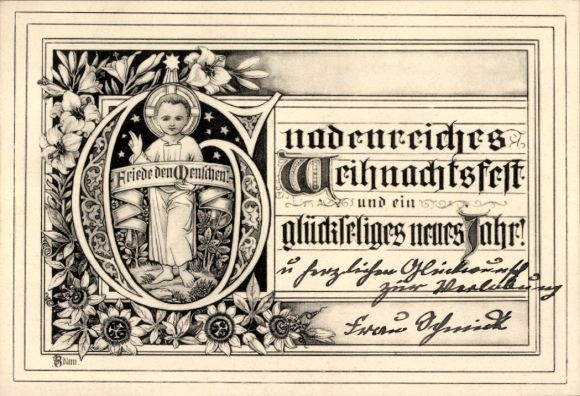 Friede den Menschen!
Gnadenreiches
Weihnachtsfest
und ein
glückseliges neues Jahr!
u herzlichen Glückwunsch
zur Verlobung
Frau Schmidt